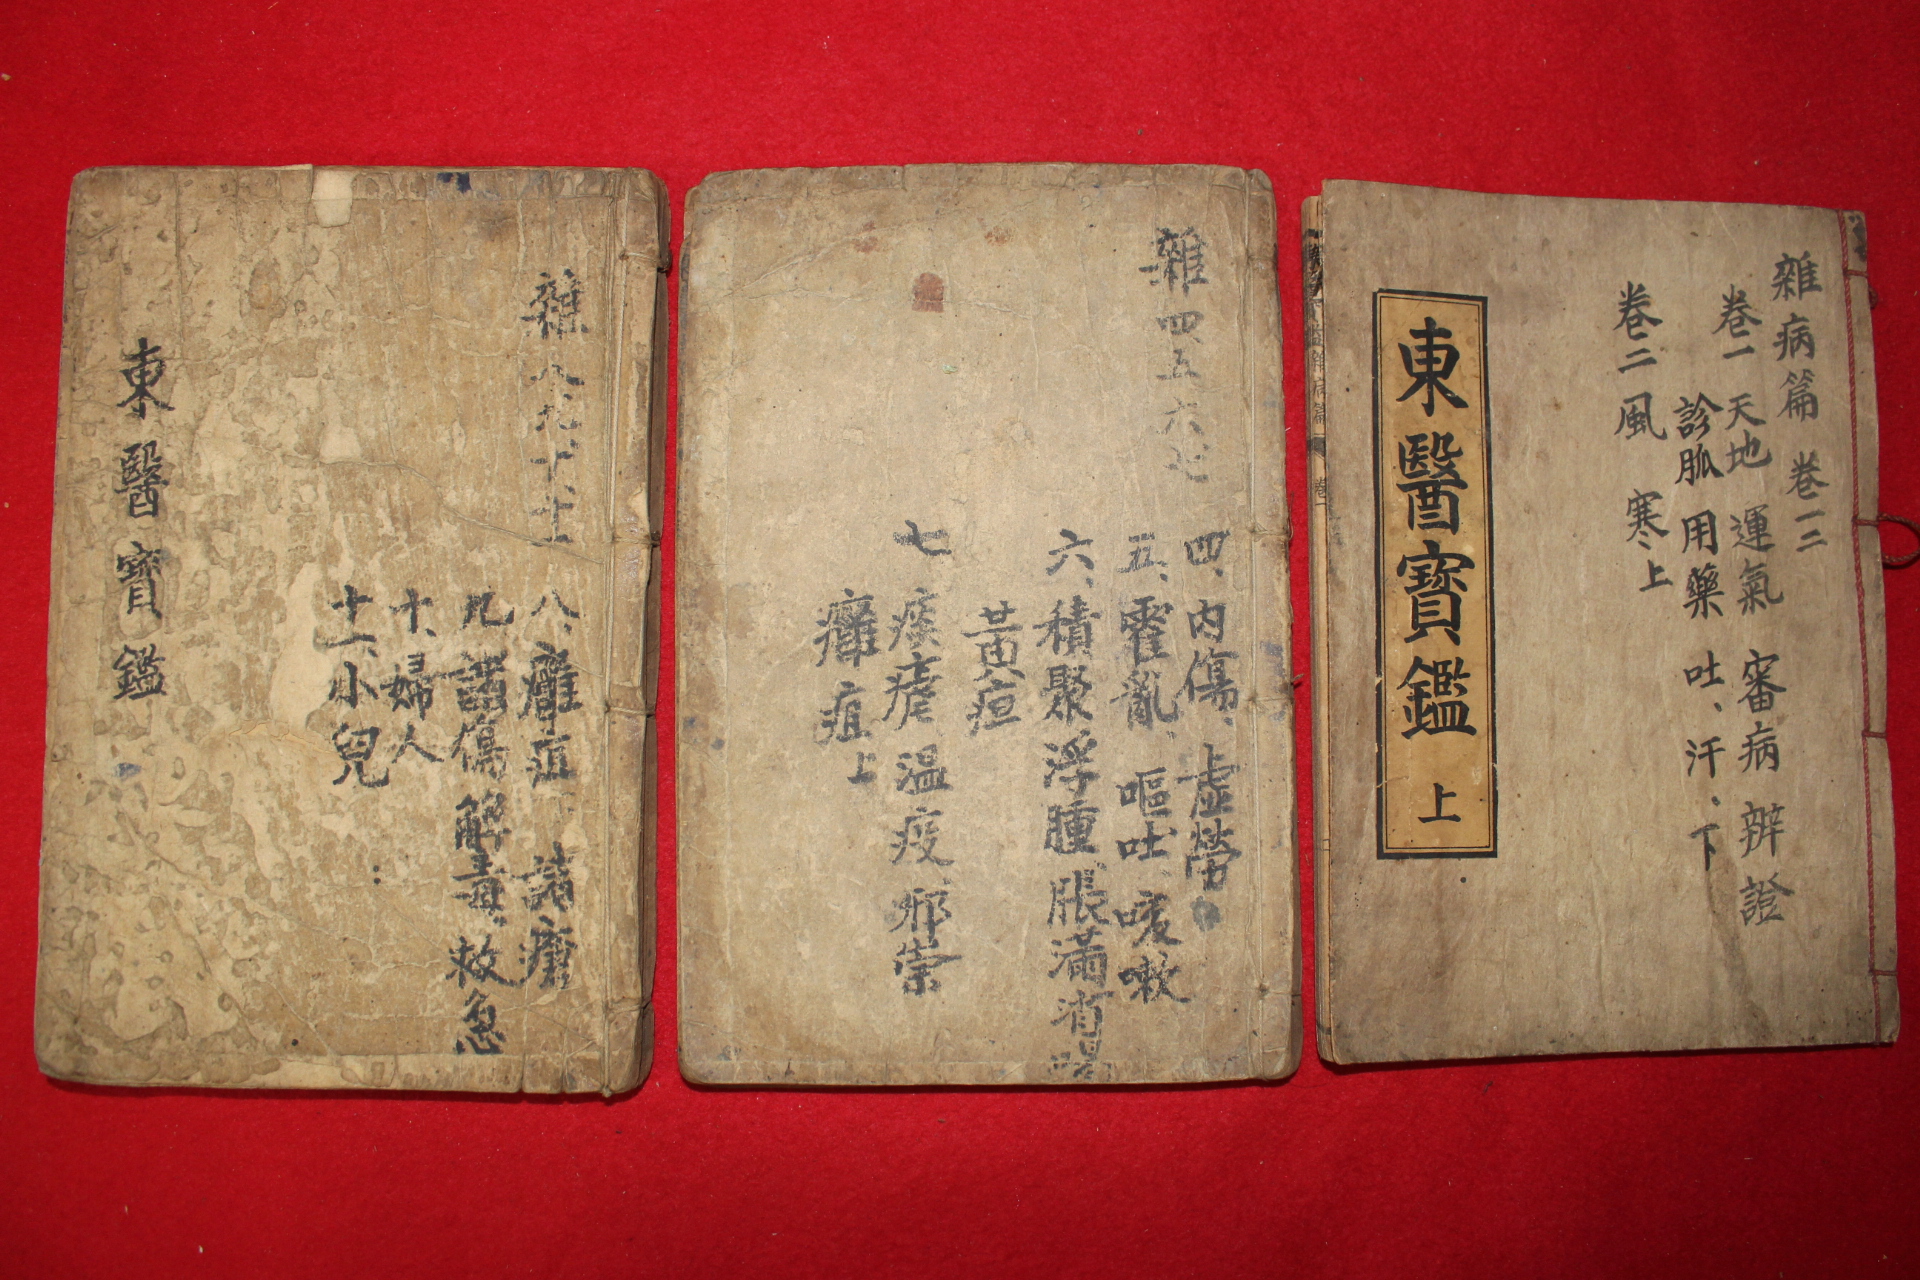 雜病篇 卷一二
卷一 天地 運氣 審病 辨證
診脈 用藥 吐、汗、下
卷二 風 寒上
東醫寶鑑 上
雜四五六七
四、內傷、虛勞
五、霍亂、嘔吐、咳嗽
六、積聚 浮腫、脹滿 消渴
黃疸
七 痎瘧 溫疫 邪祟
癰疽上
雜八九十、十一
八、癰疽下 諸瘡
九 諸傷 解毒、救急
十、婦人
十一、小兒
東醫寶鑑